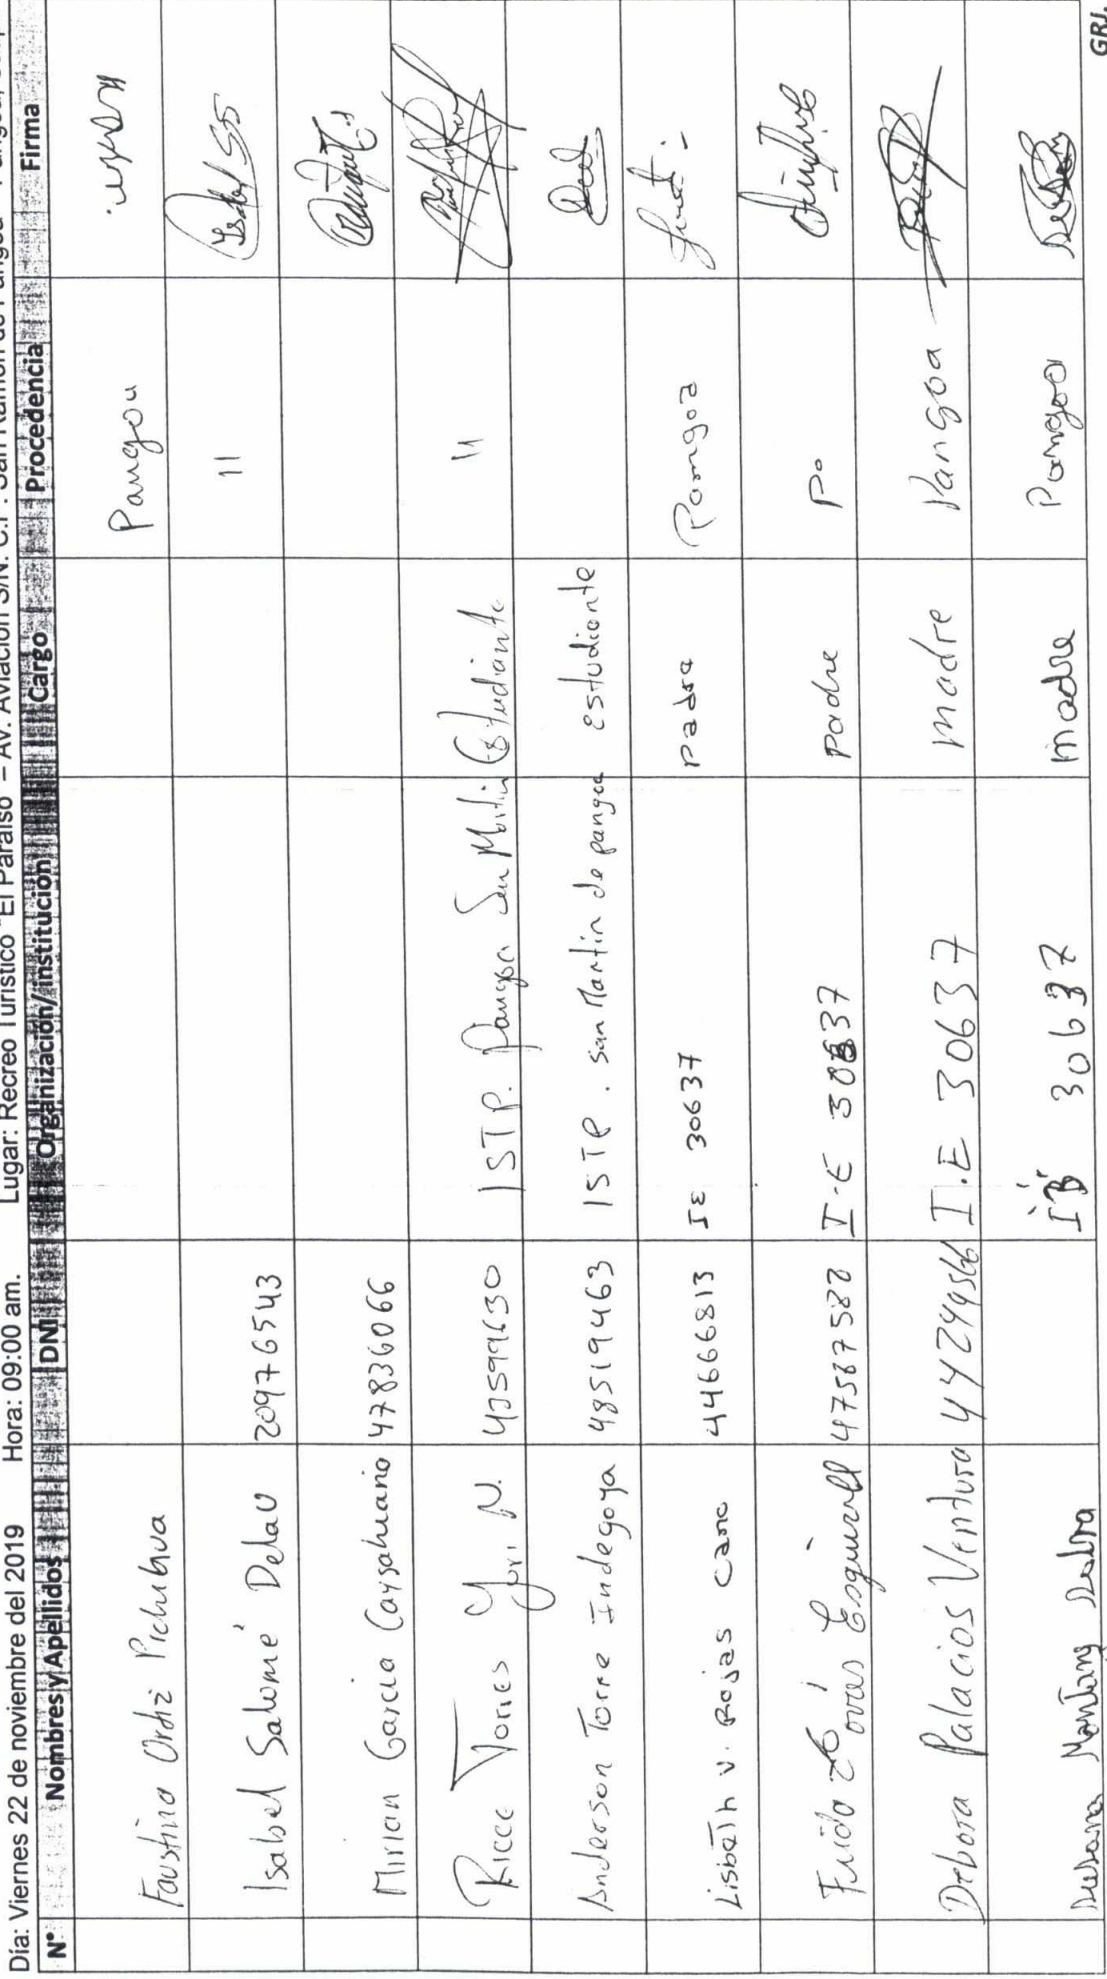 Día: Viernes 22 de noviembre del 2019 Hora: 09:00 am. Lugar: Recreo Turístico "El Paraíso" – Av. Aviación S/N. C.P. San Ramón de Pangoa
N° Nombres y Apellidos DNI Organización/institución Cargo Procedencia Firma
Faustino Ortiz Pichuhua Pangoa
Isabel Salomé 20976543 11
Mirian Garcia Caysahuano 47836066
Ricce Torres Yuri N. ISTP. Pangoa San Martin Estudiante 11
Anderson Torre Indegoya 48519463 ISTP. San Martin de pangoa estudiante
Lisbeth v. Rojas Cano 44666813 IE 30637 padre Pangoa
47587588 I.E 30637 Padre Pa
Debora Palacios Ventura I.E 30637 madre Pangoa
30637 madre Pangoa
GRJ.